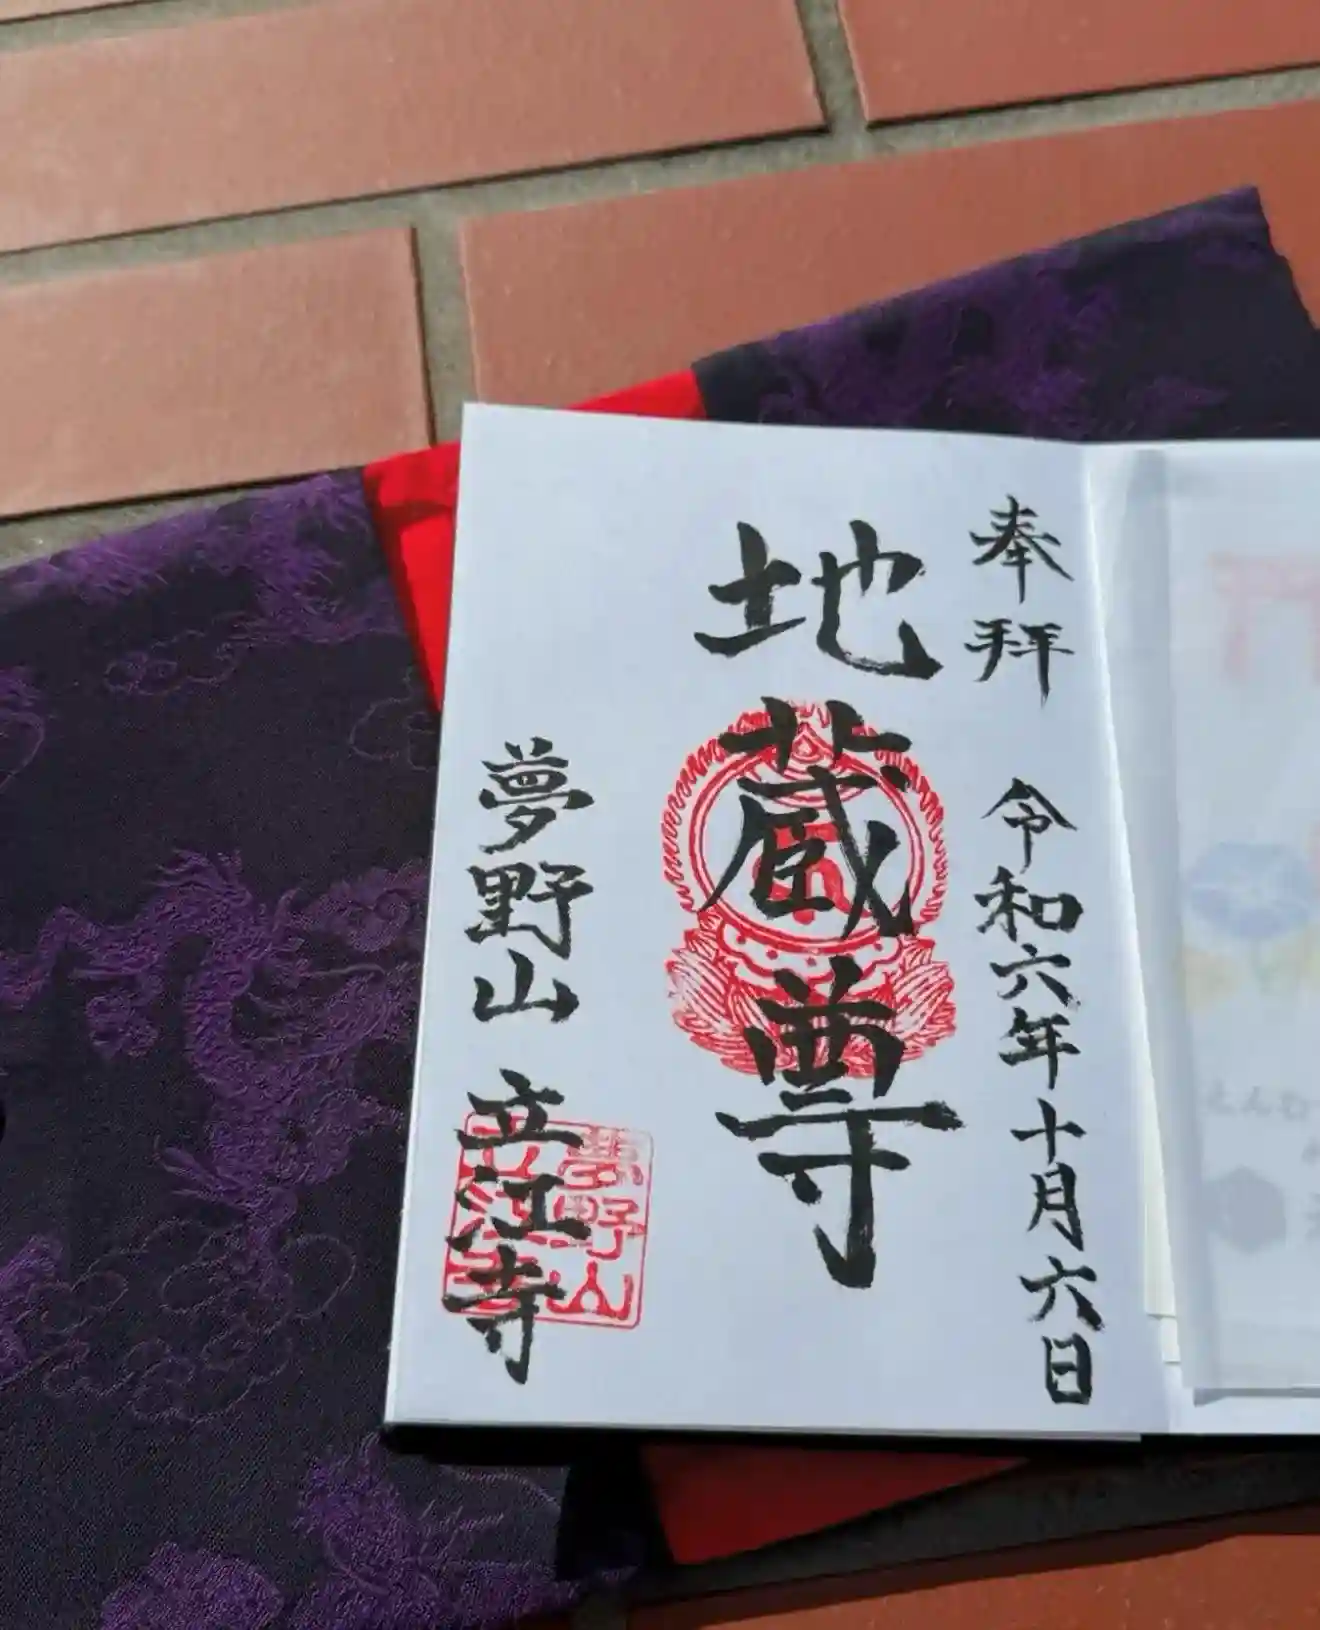 奉拝 令和六年十月六日
地蔵尊
夢野山 立江寺
夢野山
立江寺